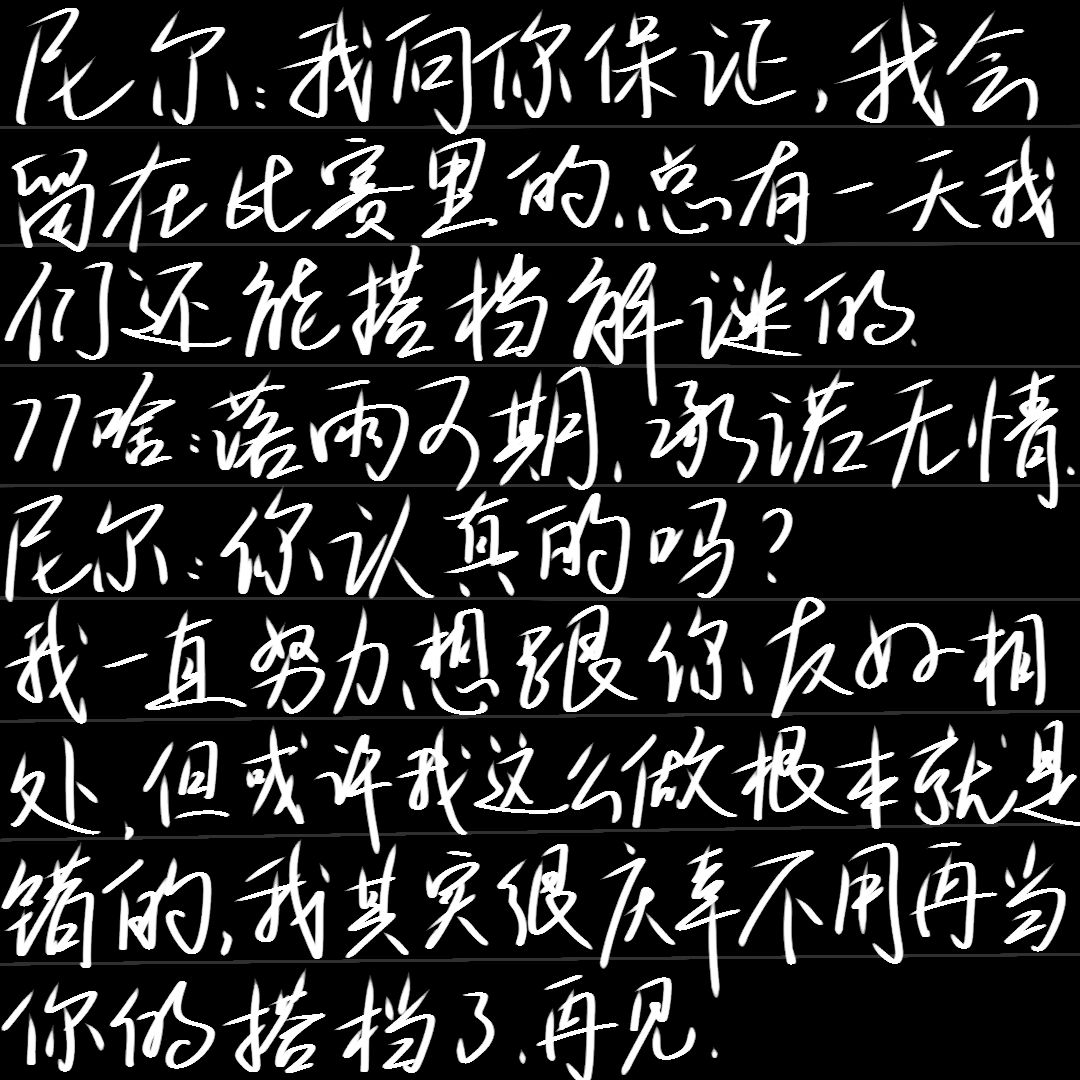 尼尔:我向你保证,我会
留在比赛里的.总有一天我
们还能搭档解谜的.
77啥:落雨可期.承诺无情.
尼尔:你认真的吗?
我一直努力想跟你友好相
处,但或许我这么做根本就是
错的,我其实很庆幸不用再当
你的搭档了.再见.